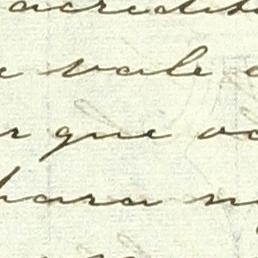 acredit
e vale a
r que vo
para n